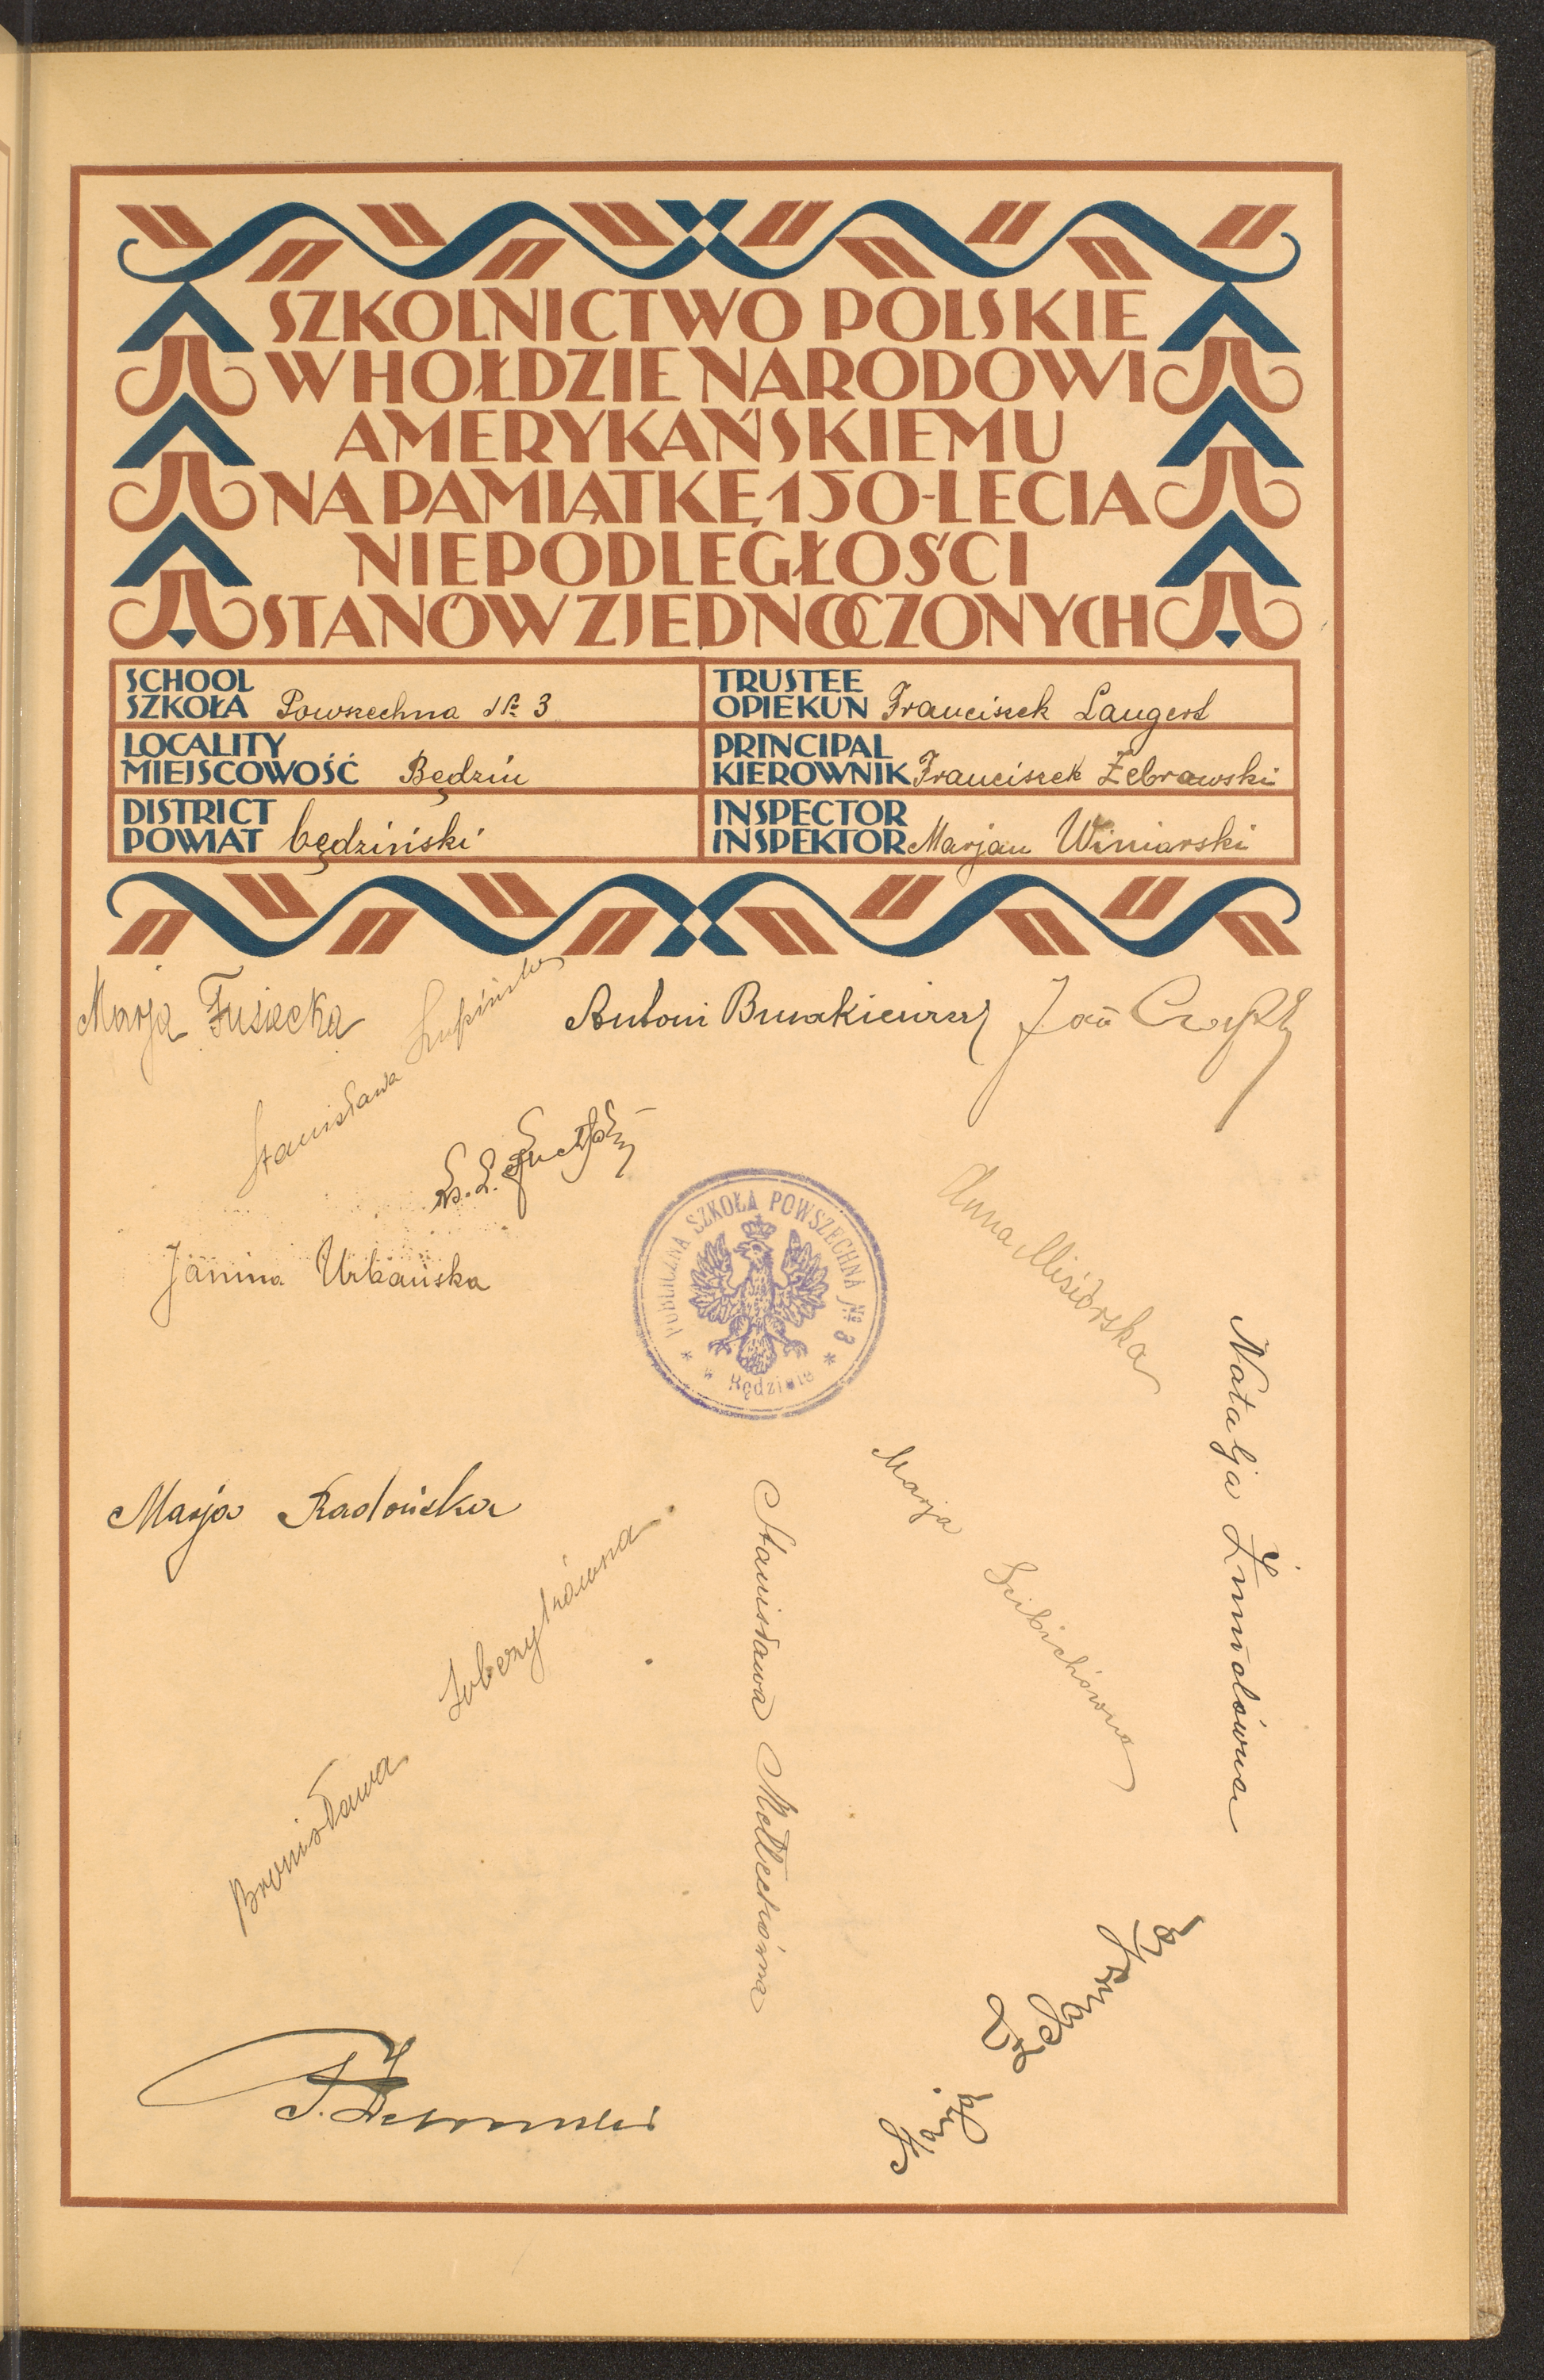 SZKOLNICTWO POLSKIE
W HOŁDZIE NARODOWI
AMERYKAŃSKIEMU
NA PAMIĄTKĘ 150-LECIA
NIEPODLEGŁOŚCI
STANÓW ZJEDNOCZONYCH
SCHOOL
SZKOŁA Powszechna № 3
TRUSTEE
OPIEKUN Franciszek Langert
LOCALITY
MIEJSCOWOŚĆ Będzin
PRINCIPAL
KIEROWNIK Franciszek Żebrawski
DISTRICT
POWIAT będziński
INSPECTOR
INSPEKTOR Marjan Winiarski
Marja Fusiecka
Stanisława Łupińska
Antoni
Jan
Janina Urbańska
PUBLICZNA SZKOŁA POWSZECHNA № 3
w Będzinie
Anna Misiórska
Natalja Żmudówna
Marja Radońska
Marja
Stanisława
Bronisława